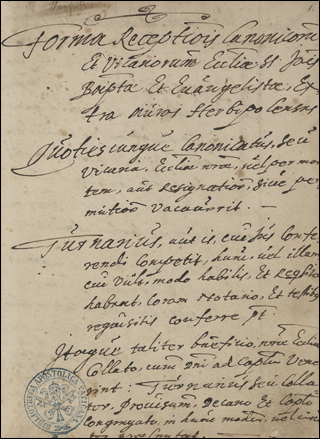 Forma Receptiõis Canonicorũ
Et Vicariorum Eccliæ St Jois
Bapptæ Et Euangelistæ, Ex
tra muros Herbipolensis
Quotiescunque Canonicatus, seu
Vicaria, Eccliæ nræ, uel per mor
tem, aut Resignatiõe, siue per
mutiõe Vacauerit. –
Turnarius, aut is, cuius Confe
rendi Competit, hunc, uel illam
cui Vult, modo habilis, Et
habeat, Coram Notario, Et testibus
requisitis conferre pt.
Itaque taliter benefício, nræ Eccliæ
Collato, cum dñi ad Captlũ Vene
rint: Turnarius seu Colla
tor, Prouisum Decano et Captlo
Congregato, in hunc modũ, uel
BIBLIOTHECA APOSTOLICA VATICANA